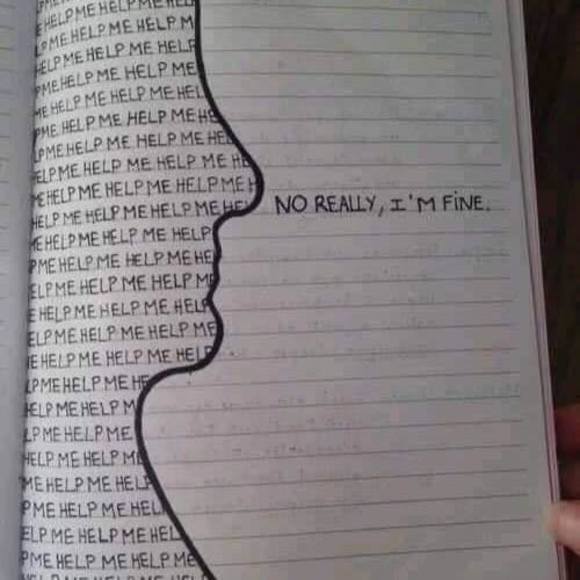 HELP ME HELP ME HEL
E HELP ME HELP ME HELP M
LP ME HELP ME HELP M
HELP ME HELP ME HELP
PME HELP ME HELP ME
ME HELP ME HELP ME HEL
ME HELP ME HELP ME HE
LP ME HELP ME HELP ME HE
ELP ME HELP ME HELP ME HE
ME HELP ME HELP ME HELP ME H
HELP ME HELP ME HELP ME HEL
NO REALLY, I'M FINE.
ME HELP ME HELP ME HELP
PME HELP ME HELP ME HE
ELP ME HELP ME HELP ME
E HELP ME HELP ME HELP
ELP ME HELP ME HELP ME
E HELP ME HELP ME HELP
LP ME HELP ME HE
HELP ME HELP M
LP ME HELP ME
HELP ME HELP ME
ME HELP ME HELP
PME HELP ME HELP
ELP ME HELP ME HEL
PME HELP ME HELP ME